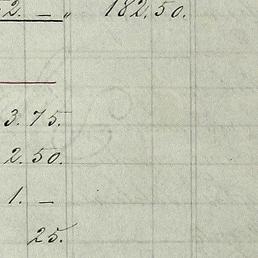 2. — „ 182.50.
3.75.
2.50.
1. —
25.